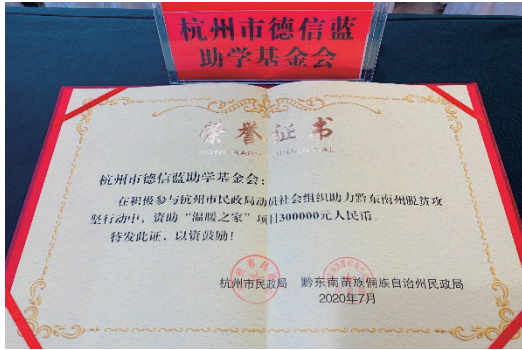 杭州市德信蓝
助学基金会
荣誉证书
杭州市德信蓝助学基金会：
在积极参与杭州市民政局动员社会组织助力黔东南州脱贫攻
坚行动中，资助“温暖之家”项目300000元人民币。
特发此证，以资鼓励！
杭州市民政局 黔东南苗族侗族自治州民政局
2020年7月